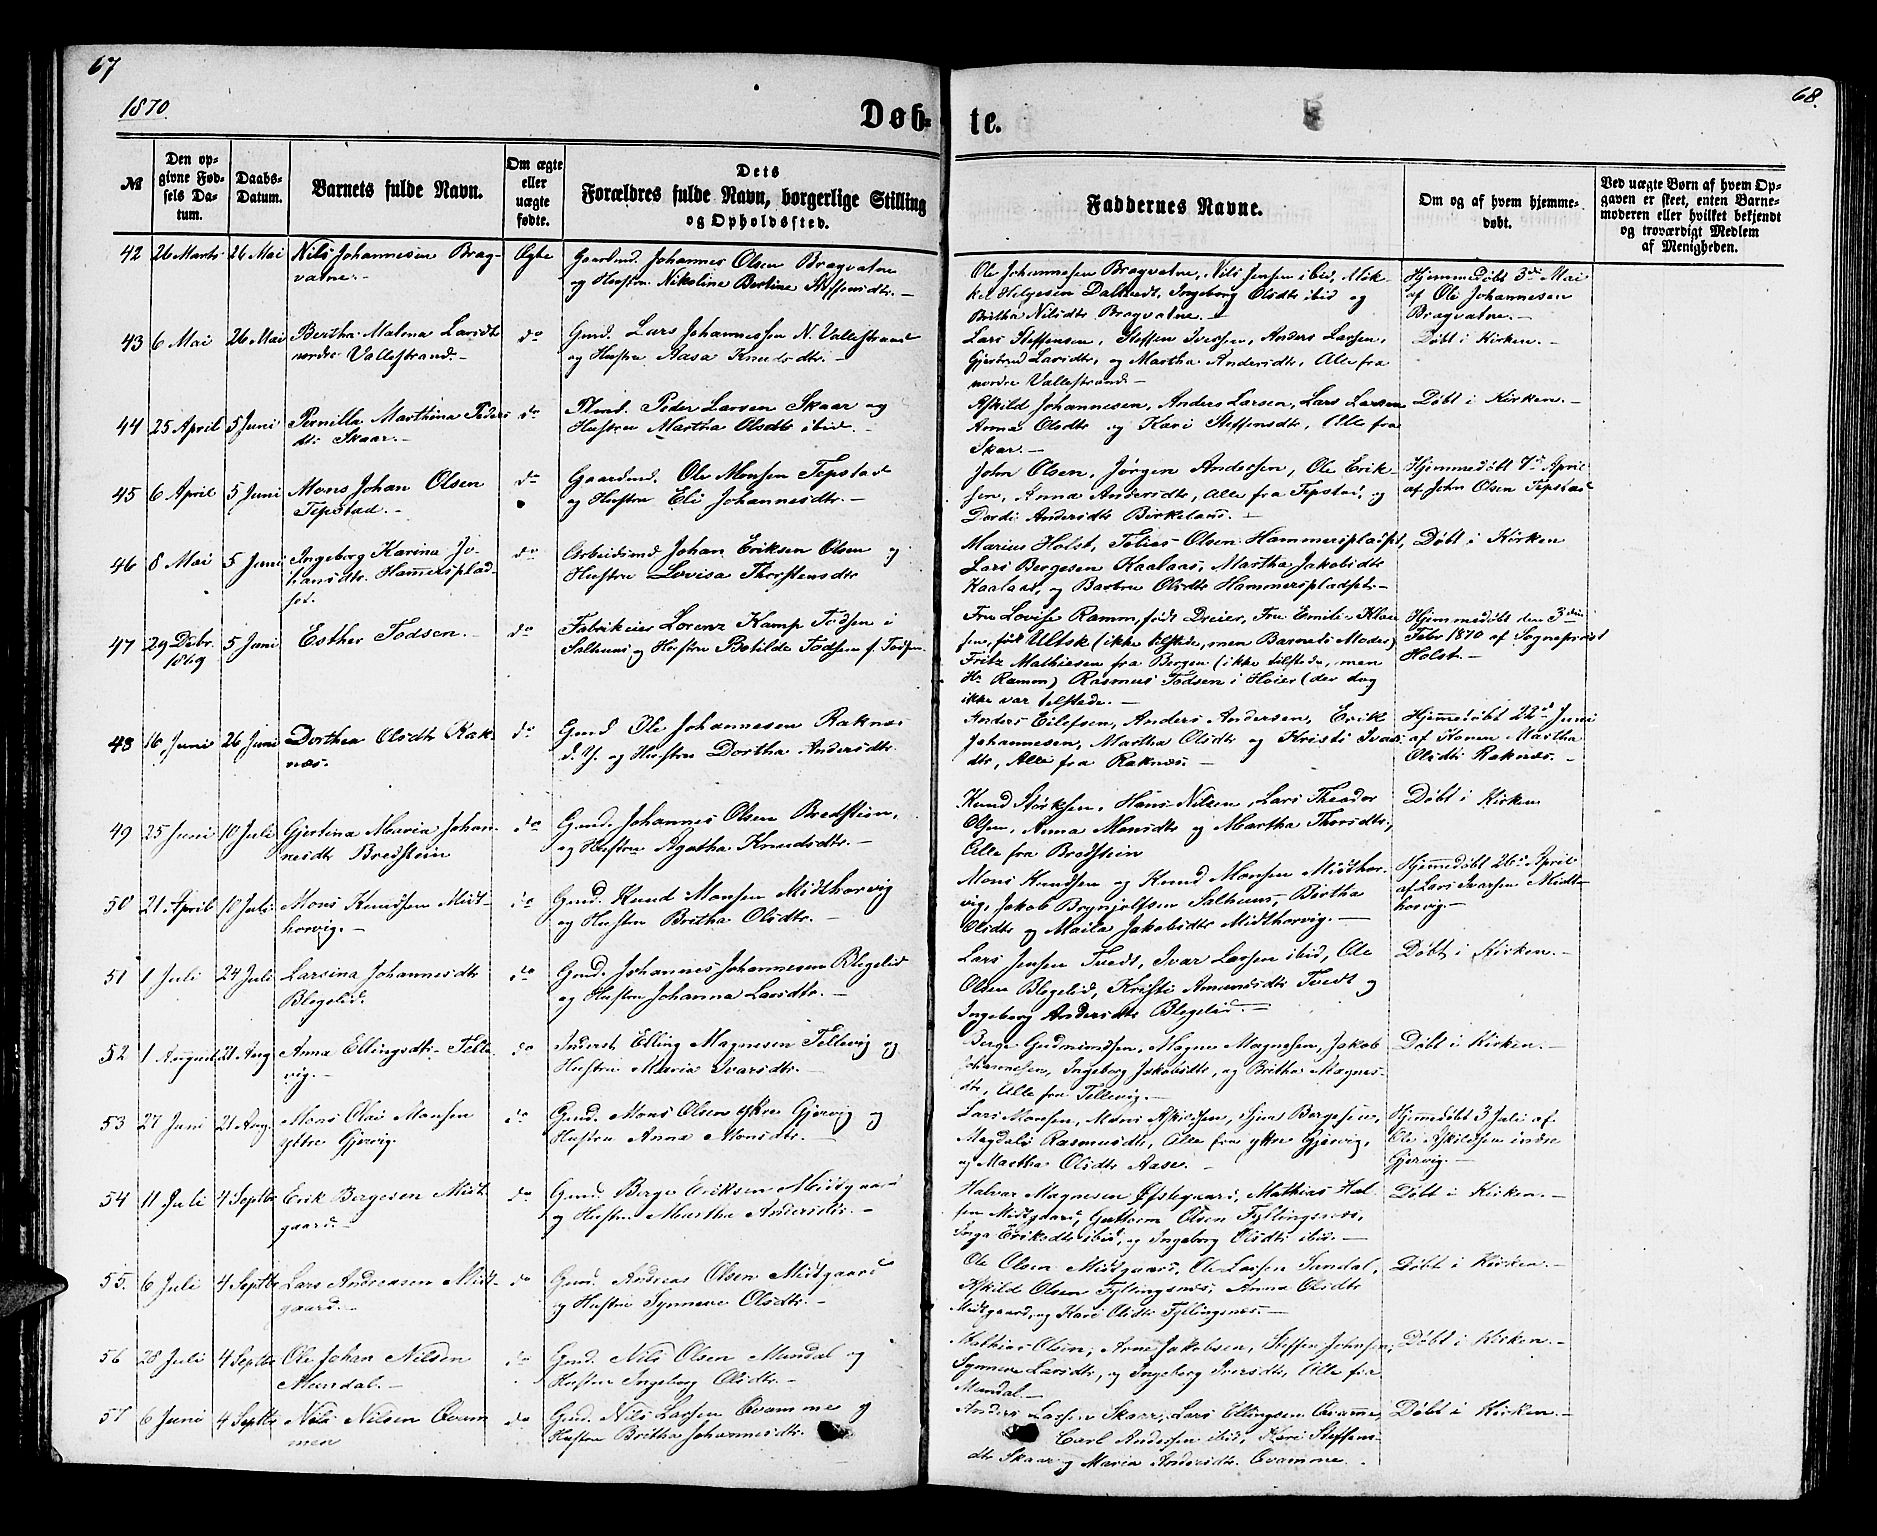 67
1870.
Døb-
te.
68.
№
Den op-
givne Fød-
sels Da-
tum.
Daabs-
Datum.
Barnets fulde Navn.
Om ægte
eller
uægte
fødte.
Dets
Forældres fulde Navn, borgerlige Stilling
og Opholdssted.
Faddernes Navne.
Om og af hvem hjemme-
døbt.
Ved uægte Børn af hvem Op-
gaven er skeet, enten Barne-
moderen eller hvilket bekjendt
og troværdigt Medlem
af Menigheden.
42 26 Marts 26 Mai Nils Johannesen Brag-
vatne.-
Ægte
Gaardmd. Johannes Olsen Bragvatne
og Hustru Nikoline Bertine Steffensdtr.-
Ole Johannesen Bragvatne, Nils Jensen ibid, Mik-
kel Helgesen Dalstvedt, Ingeborg Olsdtr ibid og
Britha Nilsdtr Bragvatne.-
Hjemmedøbt 3de Mai
af Ole Johannesen
Bragvatne.-
43 6 Mai 26 Mai Bertha Malena Larsdtr
nordre Vallestrand.-
do
Gmd. Lars Johannessen N. Vallestrand
og Hustru Aasa Knudsdtr.-
Lars Steffensen, Steffen Iversen, Anders Larsen,
Gjertrud Larsdtr, og Martha Andersdtr, Alle fra
nordre Vallestrand.-
Døbt i Kirken.-
44 25 April 5 Juni Pernilla Marthina Peders
dtr Skaar.-
do
Plmd. Peder Larsen Skaar og
Hustru Martha Olsdtr ibid.-
Askild Johannesen, Anders Larsen, Lars Larsen
Anna Olsdtr og Kari Steffensdtr, Alle fra
Skar.-
Døbt i Kirken.-
45 6 April 5 Juni Mons Johan Olsen
Tepstad.-
do
Gaardmd. Ole Monsen Tepstad
og Hustru Eli Johannesdtr.-
John Olsen, Jørgen Andersen, Ole Erik-
sen, Anna Andersdtr, Alle fra Tepstad, og
Dordi Andersdtr Birkeland.-
Hjemmedøbt 7de April
af John Olsen Tepstad
46 8 Mai 5 Juni Ingeborg Karina Jo-
hansdtr. Hammersplad-
set.
do
Arbeidsmd Johan Eriksen Olsen og
Hustru Lovisa Thorstensdtr
Marius Holst, Tobias Olsen Hammerspladst,
Lars Bergesen Kaalaas, Martha Jakobsdtr
Kaalaas, og Barbro Olsdtr Hammerspladset.-
Døbt i Kirken
47 29 Debr. 1869 5 Juni Esther Todsen.-
do
Fabrikeier Lorenz Kamp Todsen i
Salhuus og Hustru Botilde Todsen f. Todsen.
Fru Lovise Ramm, født Dreier, Fru Emilie Klau
sen, født (ikke tilstede, men Barnets Moder)
Fritz Mathiesen fra Bergen (ikke tilstede, men
Hr. Ramm) Rasmus Todsen i Høier (der dog
ikke var tilstede.-
Hjemmedøbt den 3die
Febr 1870 af Sogneprest
Holst.-
48 16 Juni 26 Juni Dorthea Olsdtr Rak-
næs.
do
Gmd Ole Johannesen Raknæs
d. Y. og Hustru Dortha Andersdtr.
Anders Eilefsen, Anders Andersen, Erik
Johannesen, Martha Olsdtr og Kristi Ivars
dtr, Alle fra Raknæs.-
Hjemmedøbt 22d Juni
af Konen Martha
Olsdtr Raknæs.-
49 25 Juni 10 Juli Gjertina Maria Johan-
nesdtr Bredstein
do
Gmd. Johannes Olsen Bredstein,
og Hustru Agatha Knudsdtr.-
Knud Størksen, Hans Nilsen, Lars Theodor
Olsen, Anna Monsdtr og Martha Thorsdtr,
Alle fra Bredstein
Døbt i Kirken
50 21 April 10 Juli Mons Knudsen Midt-
horvig.-
do
Gmd. Knud Monsen Midthorvig
og Hustru Britha Olsdtr.-
Mons Knudsen og Knud Monsen Midthor-
vig, Jakob Brynjolfsen Salhuus, Birtha
Olsdtr og Maila Jakobsdtr Midthorvig.-
Hjemmedøbt 26d April
af Lars Ivarsen Midt-
horvig.-
51 1 Juli 24 Juli Larsina Johannesdtr
Blegelid.
do
Gmd. Johannes Johannesen Blegelid
og Hustru Johanna Larsdtr.-
Lars Jensen Tvedt, Ivar Larsen ibid, Ole
Olsen Blegelid, Kristi Amundsdtr Tvedt og
Ingeborg Andersdtr Blegelid.-
Døbt i Kirken.-
52 1 August 21 Aug Anna Ellingsdtr Telle-
vig.-
do
Inderst Elling Magnesen Tellevig og
Hustru Maria Ivarsdtr.-
Berge Gudmundsen, Magne Magnesen, Jakob
Johannesen, Ingeborg Jakobsdtr, og Britha Magnes-
dtr, Alle fra Tellevig.-
Døbt i Kirken.-
53 27 Juni 21 Aug. Mons Olai Monsen
ytre Gjervig.
do
Gmd. Mons Olsen ytre Gjervig og
Hustru Anna Monsdtr.-
Lars Monsen, Mons Askildsen, Sjur Bergesen,
Magdali Rasmusdtr, Alle fra ytre Gjervig,
og Martha Olsdtr Aase.-
Hjemmedøbt 3 Juli af
Ole Askildsen indre
Gjervig.-
54 11 Juli 4 Septbr Erik Bergesen Midt
gaard.-
do
Gmd. Berge Eriksen Midtgaard
og Hustru Martha Andersdtr.-
Halvar Magnesen Øfstegaard, Mathias Hal-
sen Midtgaard, Guttorm Olsen Fyllingsnæs,
Inga Eriksdtr ibid, og Ingeborg Olsdtr ibid.-
Døbt i Kirken.-
55. 6 Juli 4 Septbr Lars Andreasen Midt-
gaard.-
do
Gmd. Andreas Olsen Midtgaard
og Hustru Synneve Olsdtr.-
Ole Olsen Midtgaard, Ole Larsen Sundal,
Askild Olsen Fyllingsnæs, Anna Olsdtr
Midtgaard, og Kari Olsdtr Fyllingsnæs.-
Døbt i Kirken.-
56 28 Juli 4 Septbr Ole Johan Nilsen
Mundal.-
do
Gmd. Nils Olsen Mundal og
Hustru Ingeborg Olsdtr.-
Mathias Olsen, Arne Jakobsen, Steffen Johnsen,
Synneve Larsdtr, og Ingeborg Iversdtr, Alle fra
Mundal.-
Døbt i Kirken.-
57 6 Juni 4 Septbr Nils Nilsen Qvam
men
do
Gmd. Nils Larsen Qvamme og
Hustru Britha Johannesdtr.
Anders Larsen Skaar, Lars Ellingsen Qvamme,
Carl Andersen ibid, Kari Steffens-
dtr Skaar og Maria Andersdtr. Qvamme.
Døbt i Kirken.-